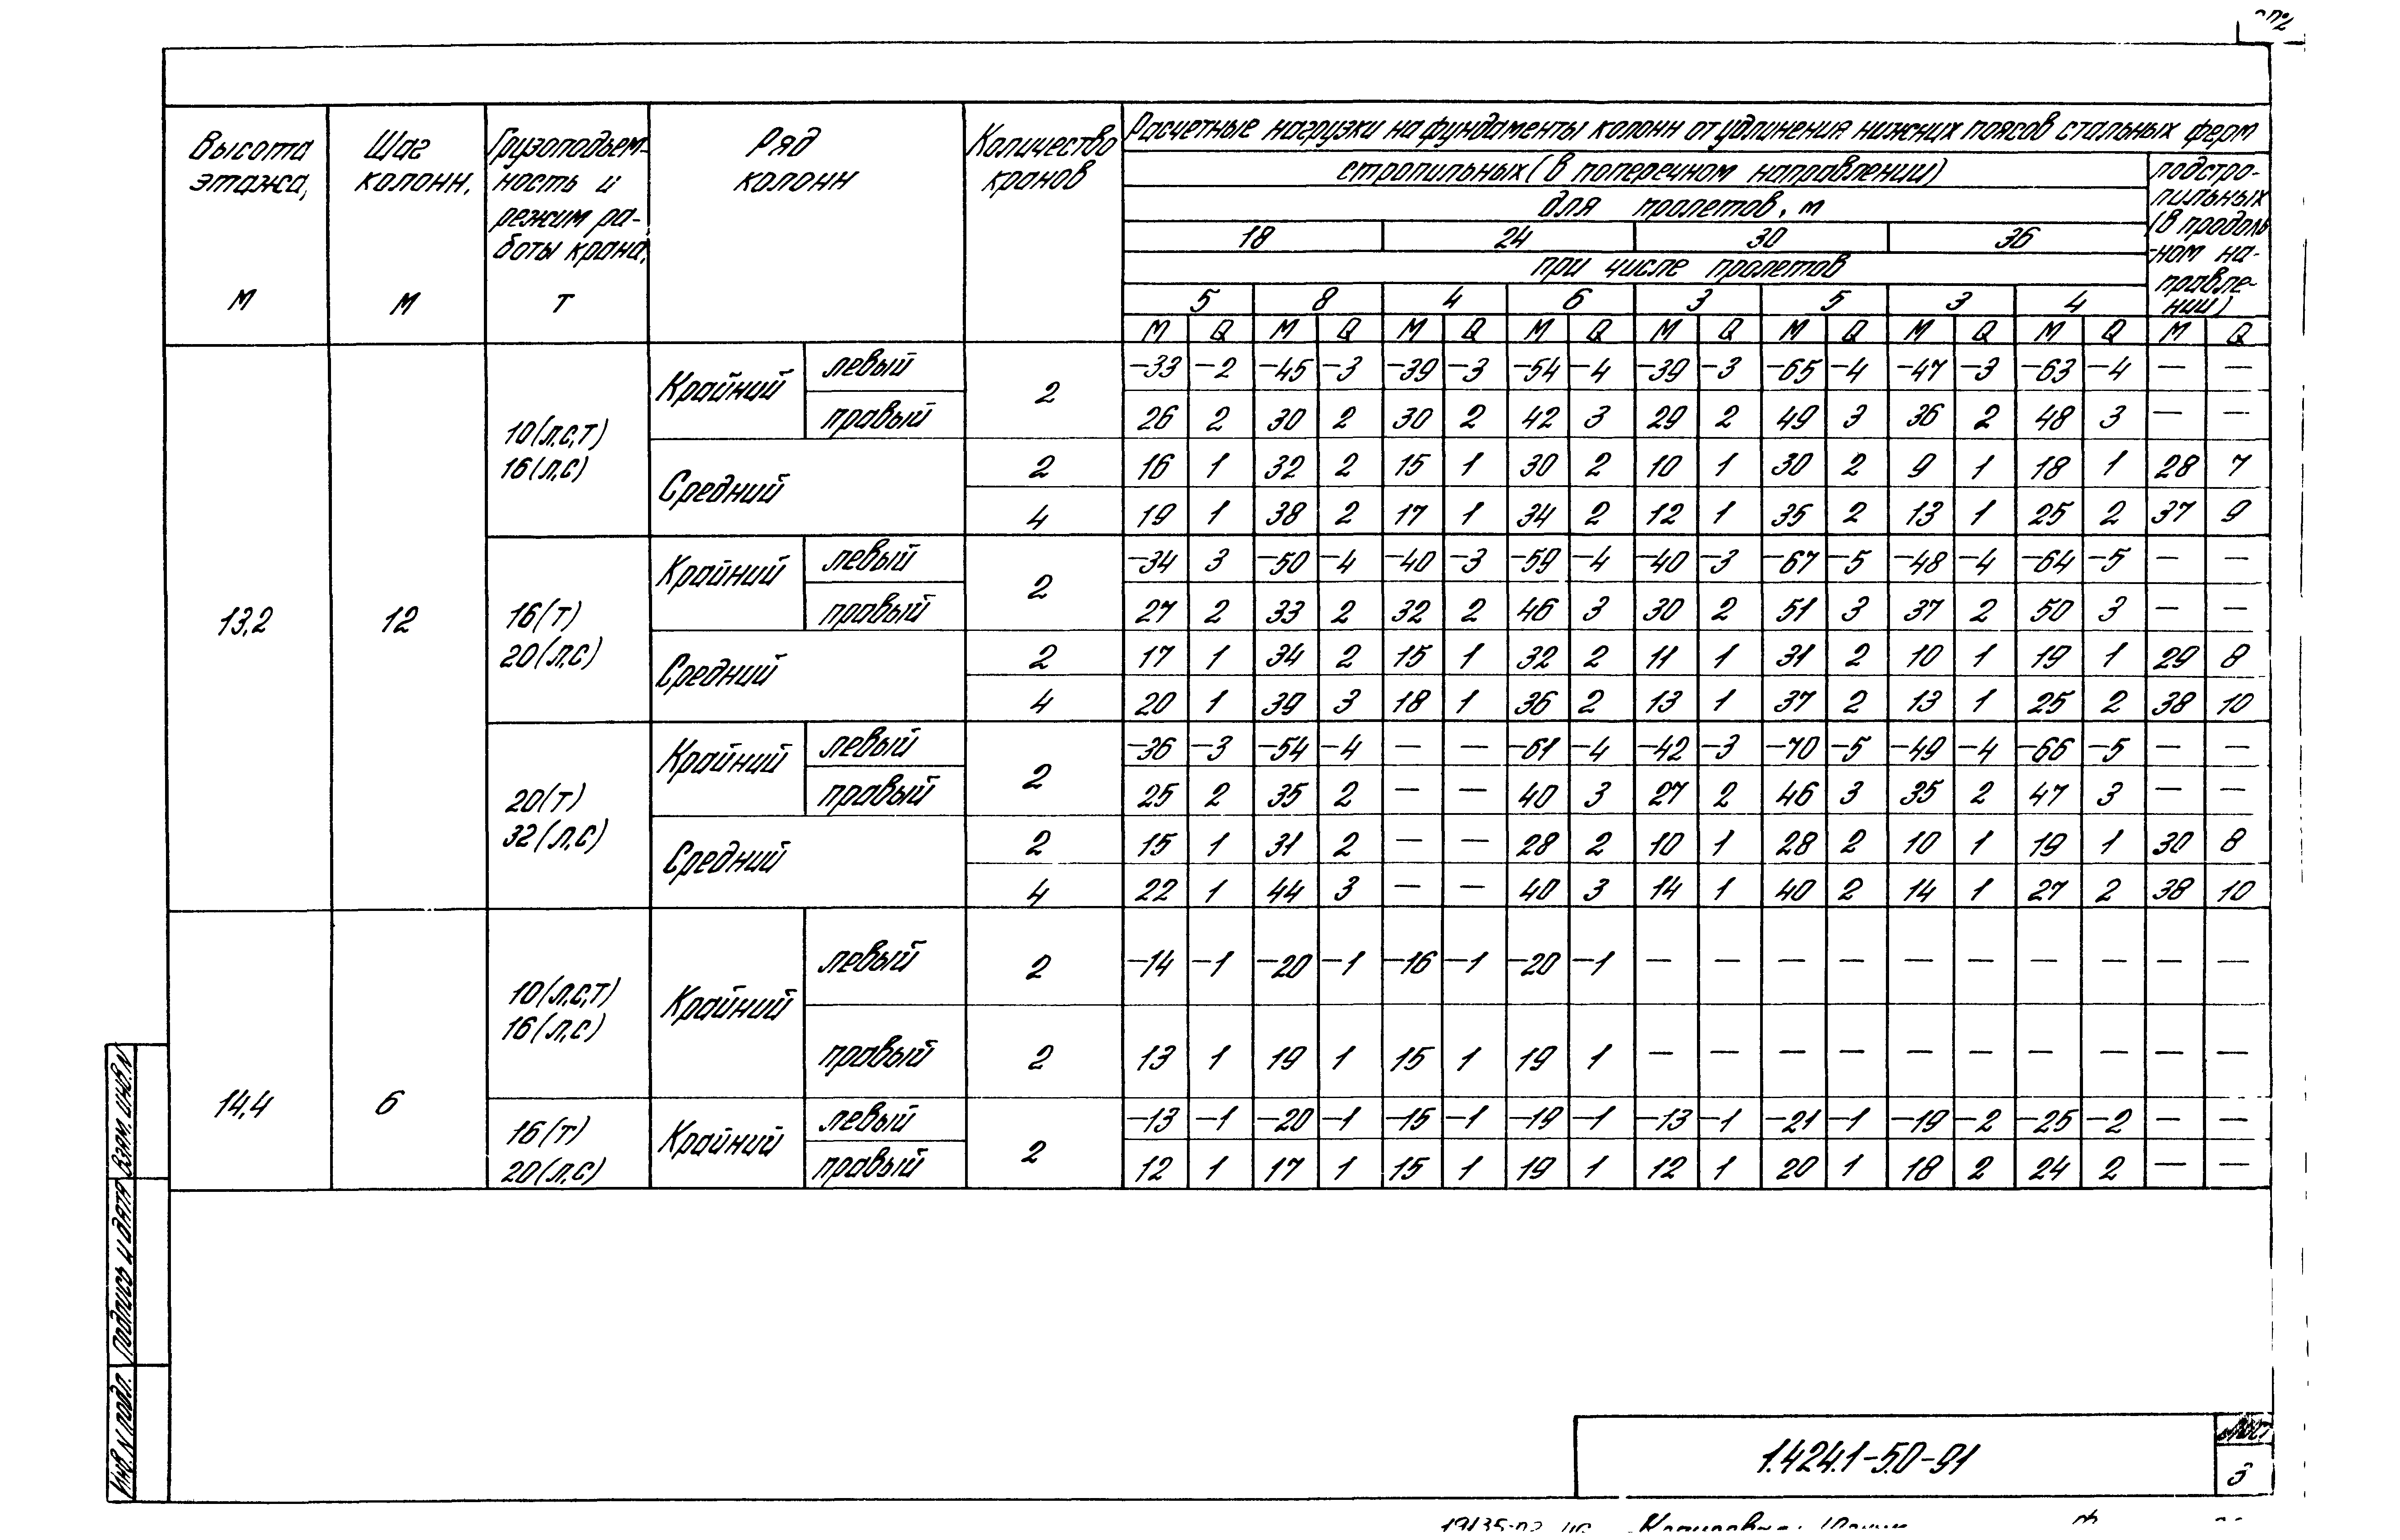 Высота этажа, м
Шаг колонн, м
Грузоподъем-
ность и
режим ра-
боты крана,
т
Ряд колонн
Количество кранов
Расчетные нагрузки на фундаменты колонн от удлинения нижних поясов стальных ферм
стропильных (в поперечном направлении)
подстро-
пильных
(в продоль
-ном на-
правле-
нии)
для пролетов, м
18 24 30 36
при числе пролетов
5 8 4 6 3 5 3 4
М Q М Q М Q М Q М Q М Q М Q М Q М Q
13,2 12
10(л,с,т)
16(л,с)
Крайний левый 2 -33 -2 -45 -3 -39 -3 -54 -4 -39 -3 -65 -4 -47 -3 -63 -4 — —
правый 26 2 30 2 30 2 42 3 29 2 49 3 36 2 48 3 — —
Средний 2 16 1 32 2 15 1 30 2 10 1 30 2 9 1 18 1 28 7
4 19 1 38 2 17 1 34 2 12 1 35 2 13 1 25 2 37 9
16(т)
20(л,с)
Крайний левый 2 -34 3 -50 -4 -40 -3 -59 -4 -40 -3 -67 -5 -48 -4 -64 -5 — —
правый 27 2 33 2 32 2 46 3 30 2 51 3 37 2 50 3 — —
Средний 2 17 1 34 2 15 1 32 2 11 1 31 2 10 1 19 1 29 8
4 20 1 39 3 18 1 36 2 13 1 37 2 13 1 25 2 38 10
20(т)
32(л,с)
Крайний левый 2 -36 -3 -54 -4 — — -61 -4 -42 -3 -70 -5 -49 -4 -66 -5 — —
правый 25 2 35 2 — — 40 3 27 2 46 3 35 2 47 3 — —
Средний 2 15 1 31 2 — — 28 2 10 1 28 2 10 1 19 1 30 8
4 22 1 44 3 — — 40 3 14 1 40 2 14 1 27 2 38 10
14,4 6
10(л,с,т)
16(л,с)
Крайний левый 2 -14 -1 -20 -1 -16 -1 -20 -1 — — — — — — — — — —
правый 2 13 1 19 1 15 1 19 1 — — — — — — — — — —
16(т)
20(л,с)
Крайний левый 2 -13 -1 -20 -1 -15 -1 -19 -1 -13 -1 -21 -1 -19 -2 -25 -2 — —
правый 12 1 17 1 15 1 19 1 12 1 20 1 18 2 24 2 — —
Взам. инв.N
Подпись и дата
Инв. N подл.
1.424.1-5.0-91
Лист
5